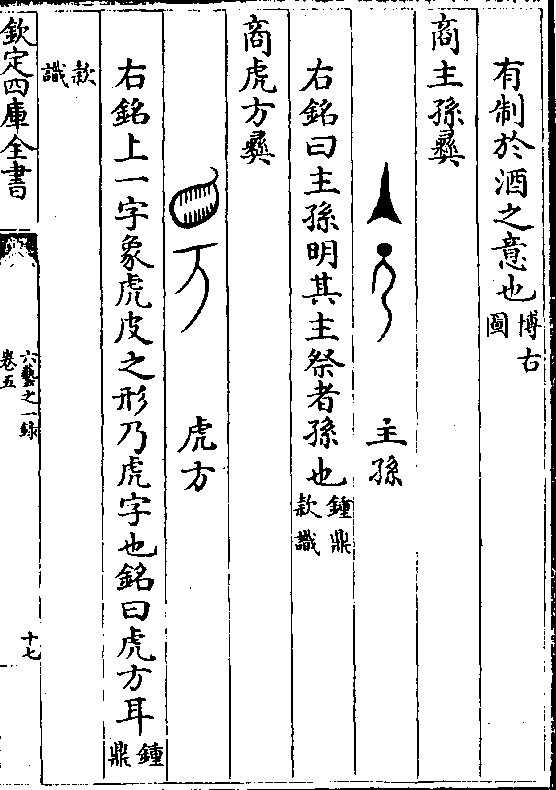 有制於酒之意也博古圖
商主孫彝
主孫
右銘曰主孫明其主祭者孫也鍾鼎款識
商虎方彝
虎方
右銘上一字象虎皮之形乃虎字也銘曰虎方耳鍾鼎
款識
欽定四庫全書
六藝之一錄
卷五
十七